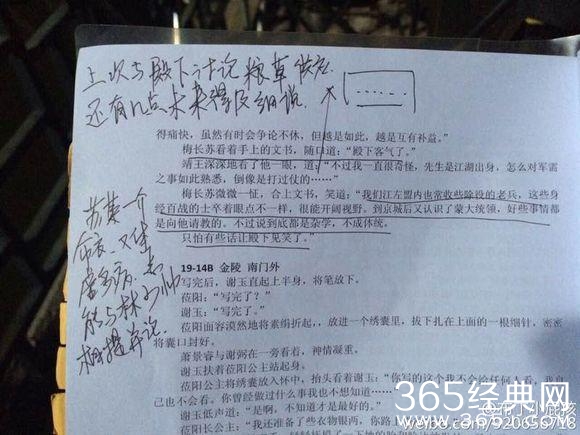 上次与殿下讨论粮草供应
还有几点未来得及细说
......
得痛快，虽然有时会争论不休，但越是如此，越是互有补益。”
梅长苏看着手上的文书，随口道：“殿下客气了。”
靖王深深地看了他一眼，道：“不过我一直很奇怪，先生是江湖出身，怎么对军需
之事如此熟悉，倒像是打过仗的……”
梅长苏微微一怔，合上文书，笑道：“我们江左盟内也常收些除役的老兵，这些身
经百战的士卒着眼点不一样，很能开阔视野。到京城后又认识了蒙大统领，好些事情都
是向他请教的。不过说到底都是杂学，不成体统。
只怕有些话让殿下见笑了。”
苏某一介
布衣 又体
虚多病 岂
能与林少帅
相提并论
19-14B 金陵 南门外
写完后，谢玉直起上半身，将笔放下。
莅阳：“写完了？”
谢玉：“写完了。”
莅阳面容漠然地将素绢折起，放进一个绣囊里，拔下扎在上面的一根细针，密密
将囊口封好。
萧景睿与谢弼在一旁看着，神情凝重。
谢玉扶着莅阳公主站起身。
莅阳公主将绣囊放入怀中，抬头看着谢玉：“你写的这个我不会给任何人看，我自
己也不会看。你曾经做过什么事我也不想知道……”
谢玉低声道：“是啊，不知道才是最好的。”
莅阳长公主：“我还准备了些衣物银两，你路上
365经典网
365JZ.COM
weibo.com/920656718